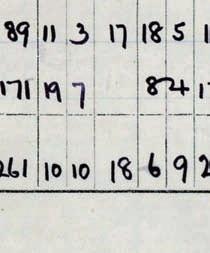 89 11 3 17 18 5 1
171 19 7 8 4 1
261 10 10 18 6 9 2